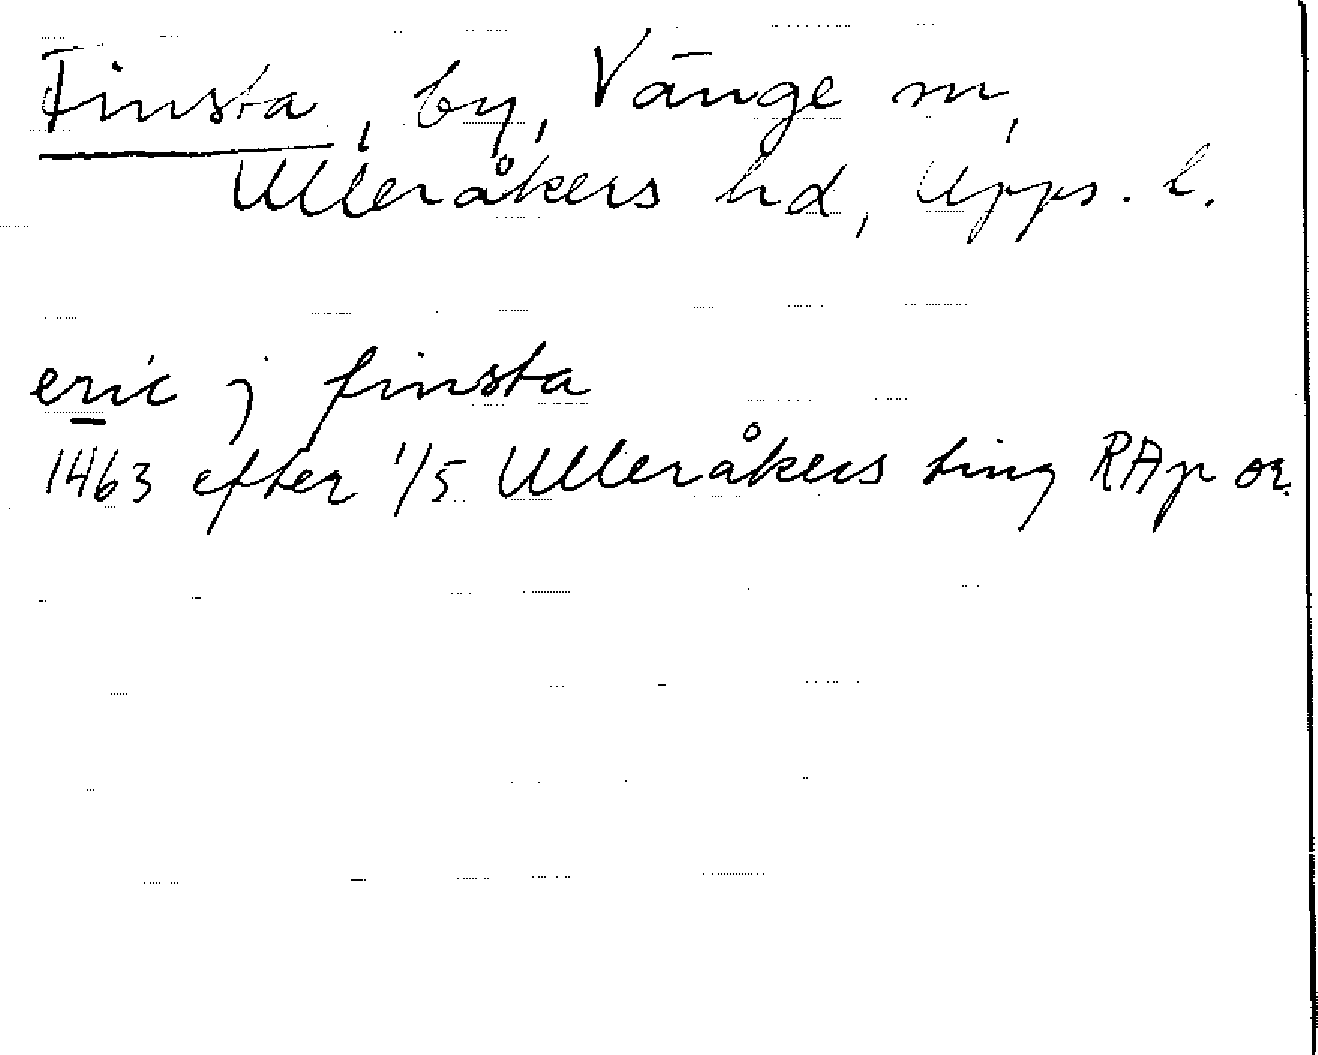 Finsta, by, Vänge sn,
Ulleråkers hd, Upps. l.
eric j finsta
1463 efter 1/5 Ulleråkers ting RAp or.